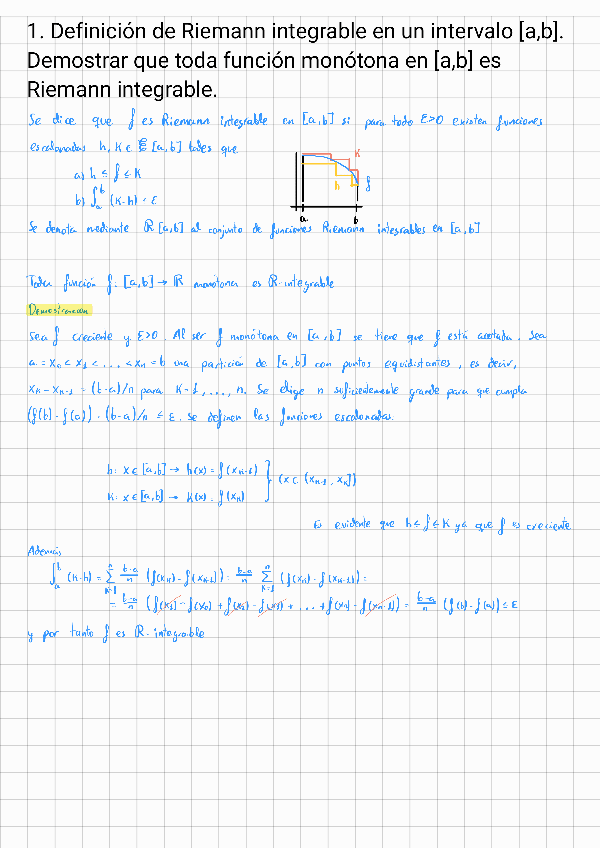 1. Definición de Riemann integrable en un intervalo [a,b].
Demostrar que toda función monótona en [a,b] es
Riemann integrable.
Se dice que f es Riemann integrable en [a,b] si para todo ε>0 existen funciones
escalonadas h, K ∈ ξ [a,b] tales que
a) h ≤ f ≤ K
b) ∫_a^b (K-h) < ε
K
h
f
a b
Se denota mediante R[a,b] al conjunto de funciones Riemann integrables en [a,b]
Toda función f: [a,b] → ℝ monótona es R-integrable
Demostración
Sea f creciente y ε>0. Al ser f monótona en [a,b] se tiene que f está acotada. Sea
a = x₀ < x₁ < ... < xₙ = b una partición de [a,b] con puntos equidistantes, es decir,
xₖ - xₖ₋₁ = (b-a)/n para K=1, ..., n. Se elige n suficientemente grande para que cumpla
(f(b) - f(a)) · (b-a)/n ≤ ε. Se definen las funciones escalonadas.
h: x ∈ [a,b] → h(x) = f(xₖ₋₁)
K: x ∈ [a,b] → K(x) = f(xₖ) } (x ∈ (xₖ₋₁, xₖ])
Es evidente que h ≤ f ≤ K ya que f es creciente.
Además
∫_a^b (K-h) = Σ_{K=1}^n (b-a)/n (f(xₖ) - f(xₖ₋₁)) = (b-a)/n Σ_{K=1}^n (f(xₖ) - f(xₖ₋₁)) =
= (b-a)/n (f(x₁) - f(x₀) + f(x₂) - f(x₁) + ... + f(xₙ) - f(xₙ₋₁)) = (b-a)/n (f(b) - f(a)) ≤ ε
y por tanto f es R-integrable